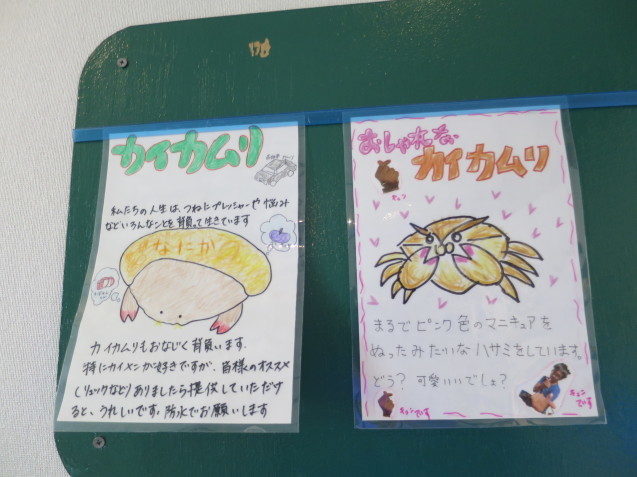 カイカムリ
私たちの人生は、つねにプレッシャーや悩み
などいろんなことを背負って生きています
なにか
カイカムリもおなじく背負います。
特にカイメンが好きですが、皆様のオススメ
(リュックなど)ありましたら提供していただけ
ると、うれしいです。防水でお願いします
おしゃれな、
カイカムリ
キュン
まるでピンク色のマニキュアを
ぬったみたいなハサミをしています。
どう?可愛いいでしょ?
キュンです
キュンです